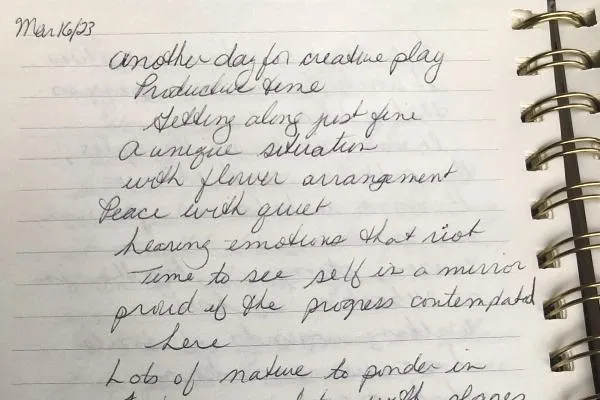 Mar 16/23
another day for creative play
Productive time
Getting along just fine
A unique situation
with flower arrangement
Peace with quiet
hearing emotions that riot
Time to see self in a mirror
proud of the progress contemplated
here
Lots of nature to ponder in
with